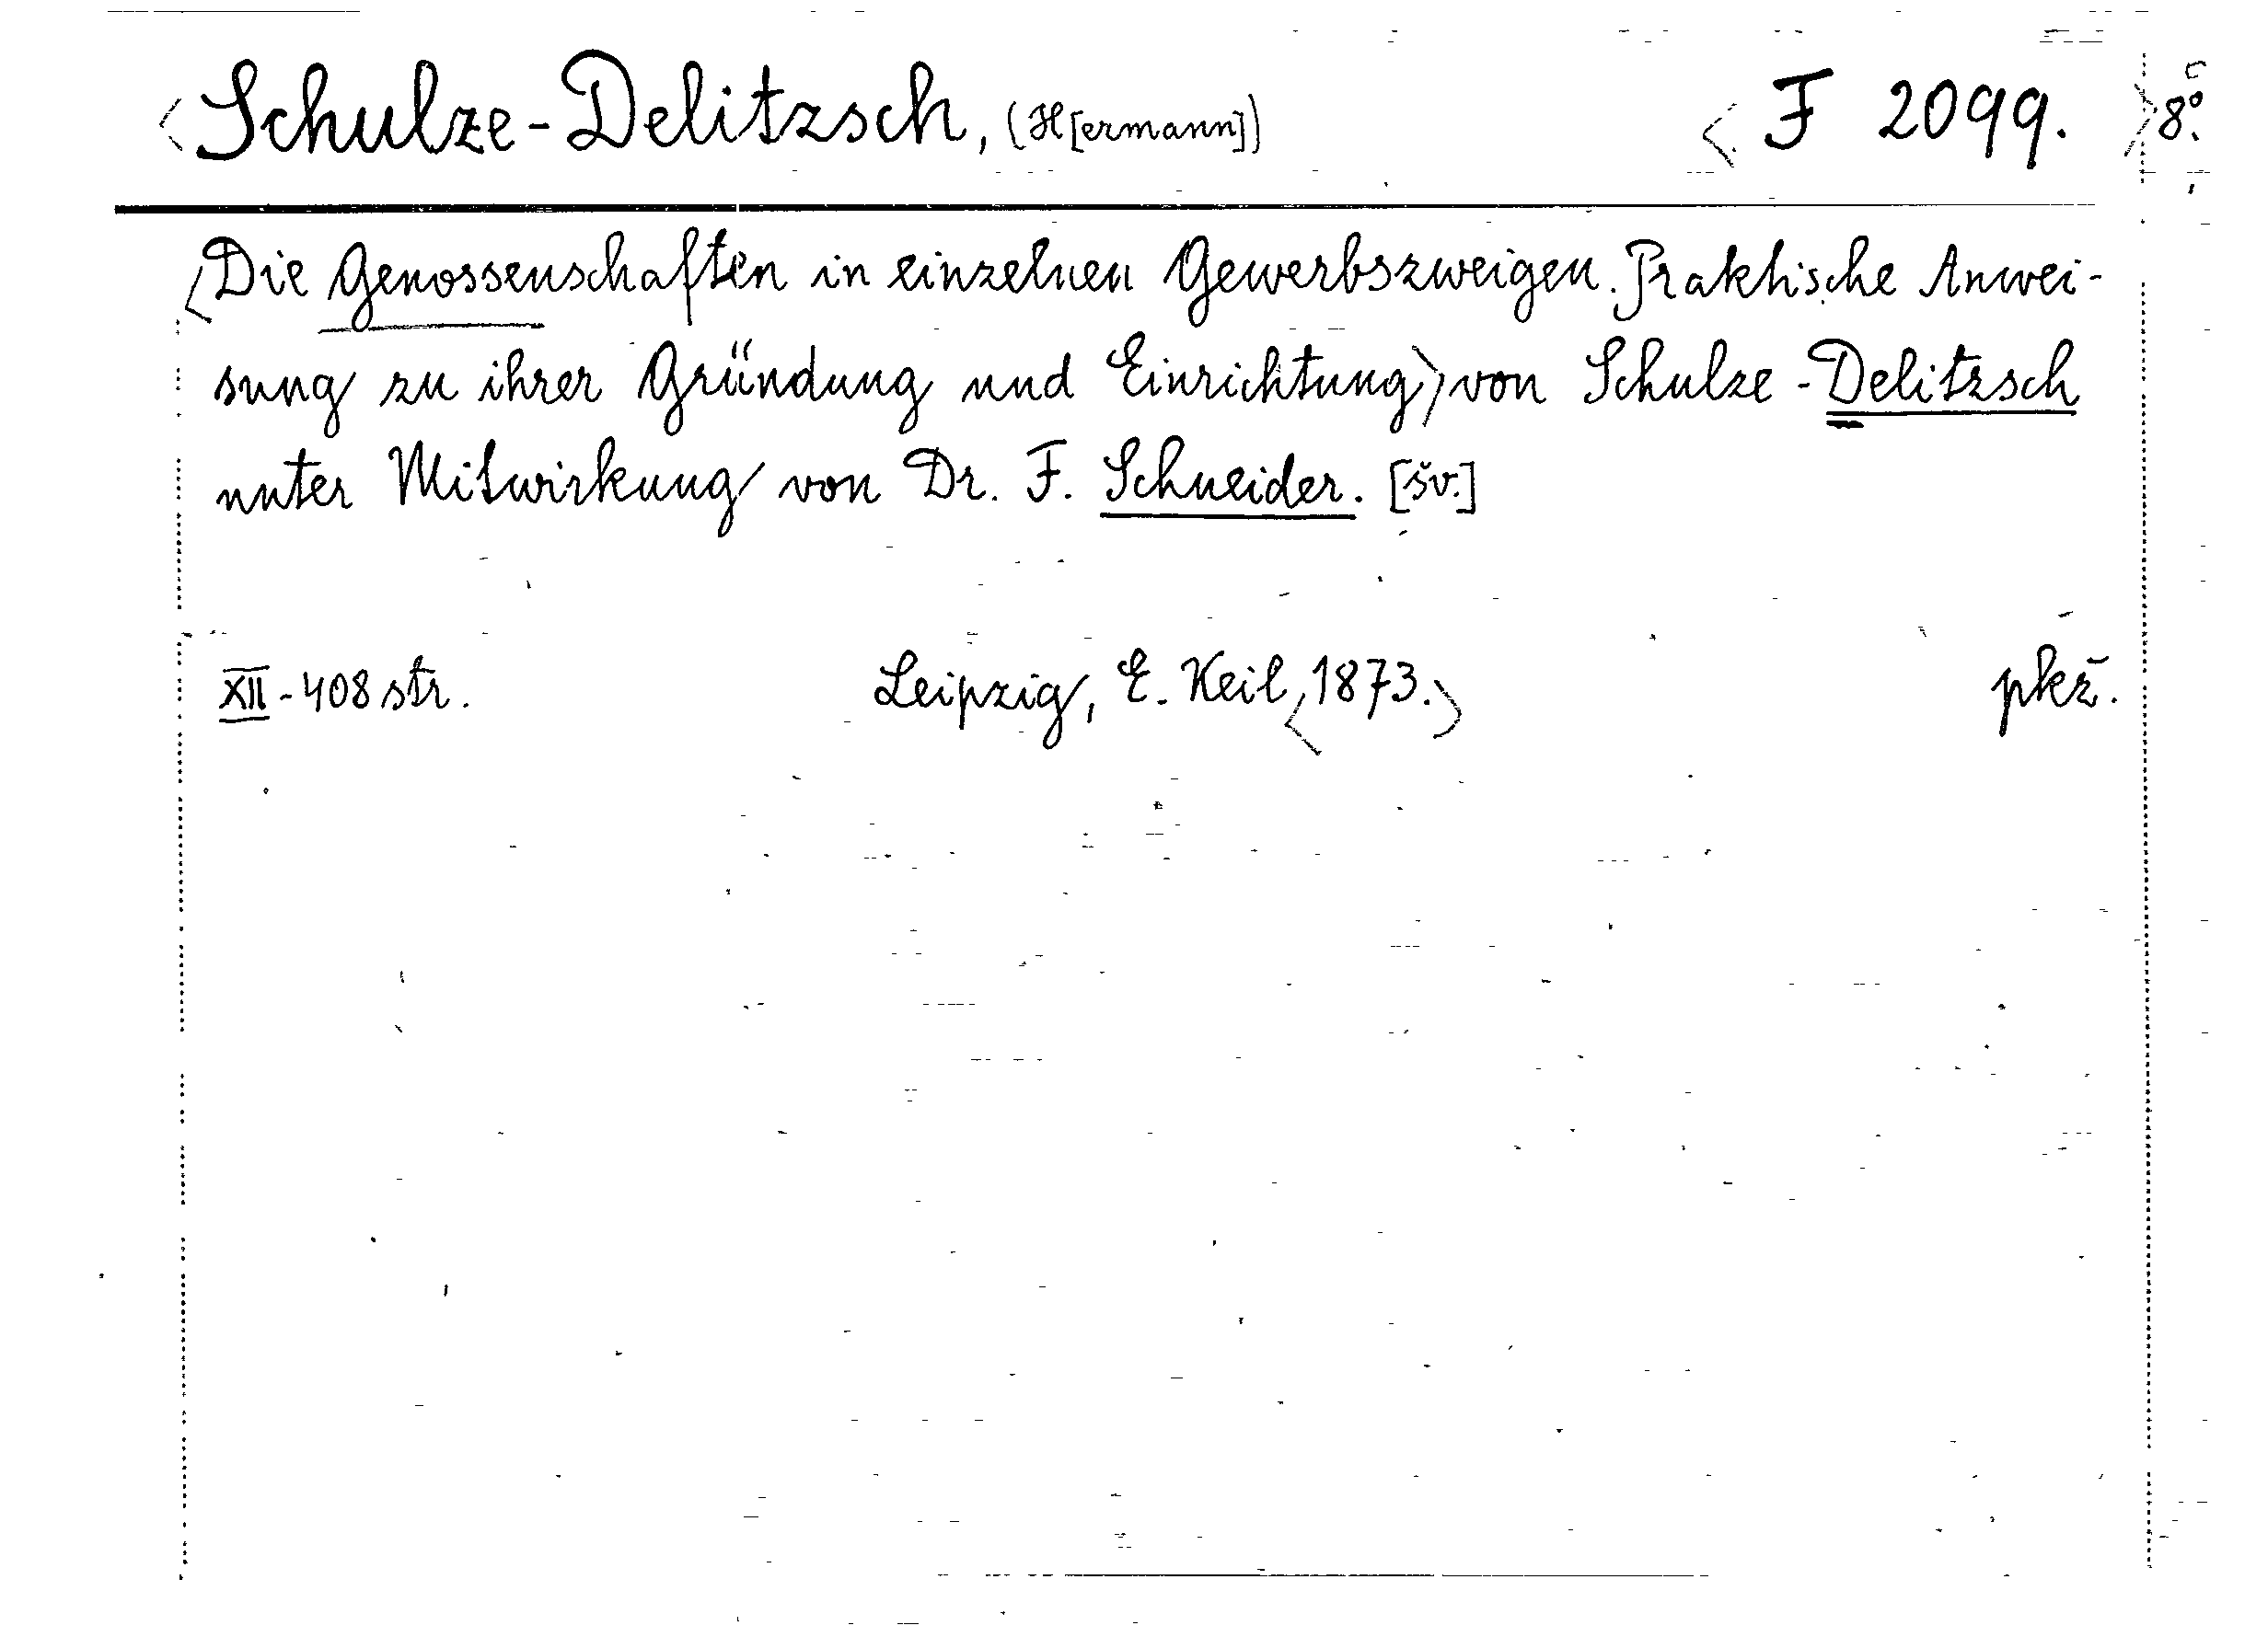 <Schulze-Delitzsch, (H[ermann]) <F 2099.> 8°.
<Die Genossenschaften in einzelnen Gewerbszweigen. Praktische Anwei-
sung zu ihrer Gründung und Einrichtung> von Schulze-Delitzsch
unter Mitwirkung von Dr. F. Schneider. [šv.]
XII-408 str. Leipzig, E. Keil, <1873.> pkž.